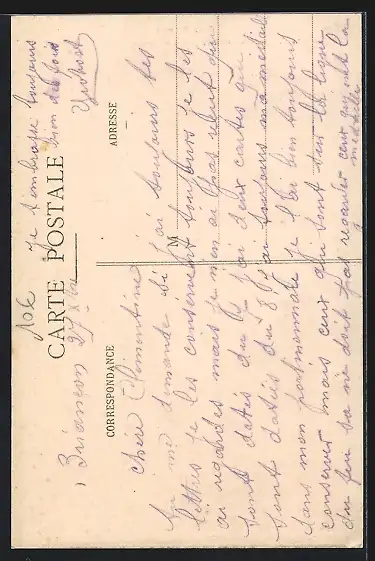 CARTE POSTALE
CORRESPONDANCE
ADRESSE
M
10E
Briançon 27
chère Clémentine
tu me demande si j'ai toujours tes
lettres je les conservent toujours je les
ai regardes mais je m'en ai pas relut dieu
sont datés du 4 j'ai deux cartes qui
sont datés du 8 j'ai toujours ma médaille
dans mon portmonnaie je l'ai bien toujours
conserver mais ceux qui sont sur la ligne
du feu sa ne doit pas regarder ceux qui ont la
médaille
je t'embrasse toujours
bien des fois